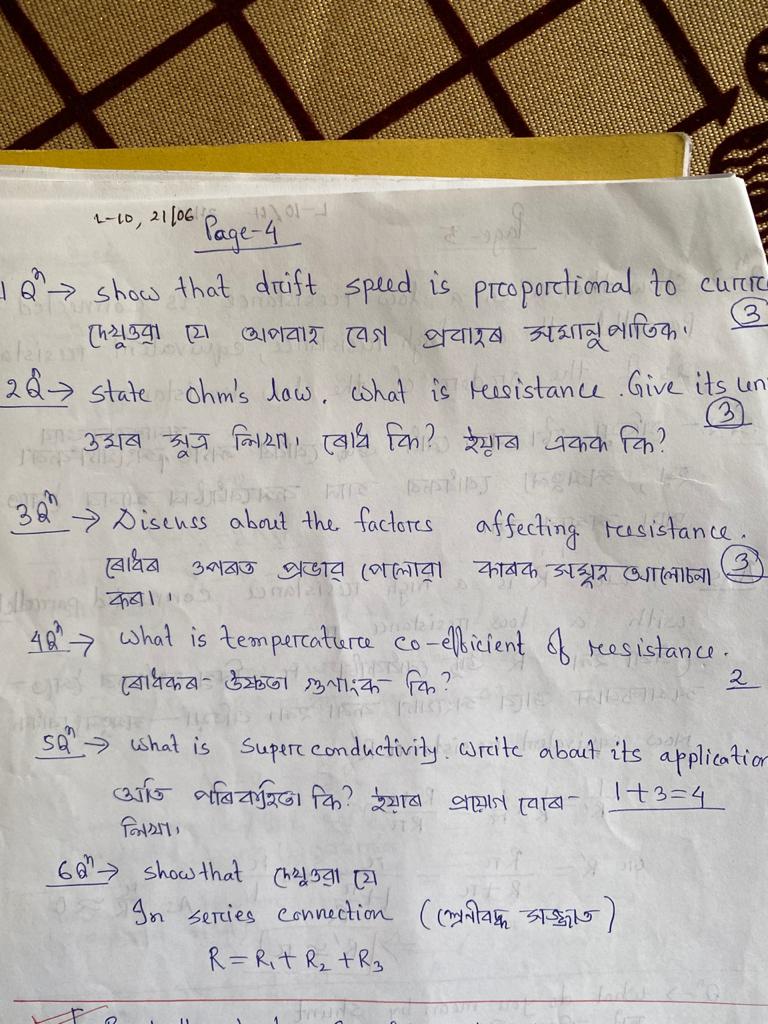 L-10, 21/06
Page-4
1 Qⁿ → show that drift speed is proportional to curre
দেখুওৱা যে অপবাহ বেগ প্ৰবাহৰ সমানুপাতিক। ③
2Qⁿ → state Ohm's law. What is resistance. Give its un
ওমৰ সূত্ৰ লিখা। ৰোধ কি? ইয়াৰ একক কি? ③
3Qⁿ → Discuss about the factors affecting resistance.
ৰোধৰ ওপৰত প্ৰভাৱ পেলোৱা কাৰক সমূহ আলোচনা ③
কৰা।
4Qⁿ → What is temperature co-efficient of resistance.
ৰোধকৰ উষ্ণতা গুণাংক কি? 2
5Qⁿ → What is Super conductivity. Write about its application
অতি পৰিবাহিতা কি? ইয়াৰ প্ৰয়োগ বোৰ 1+3=4
লিখা।
6Qⁿ → show that দেখুওৱা যে
In series connection (শ্ৰেনীবদ্ধ সজ্জাত)
R = R₁ + R₂ + R₃